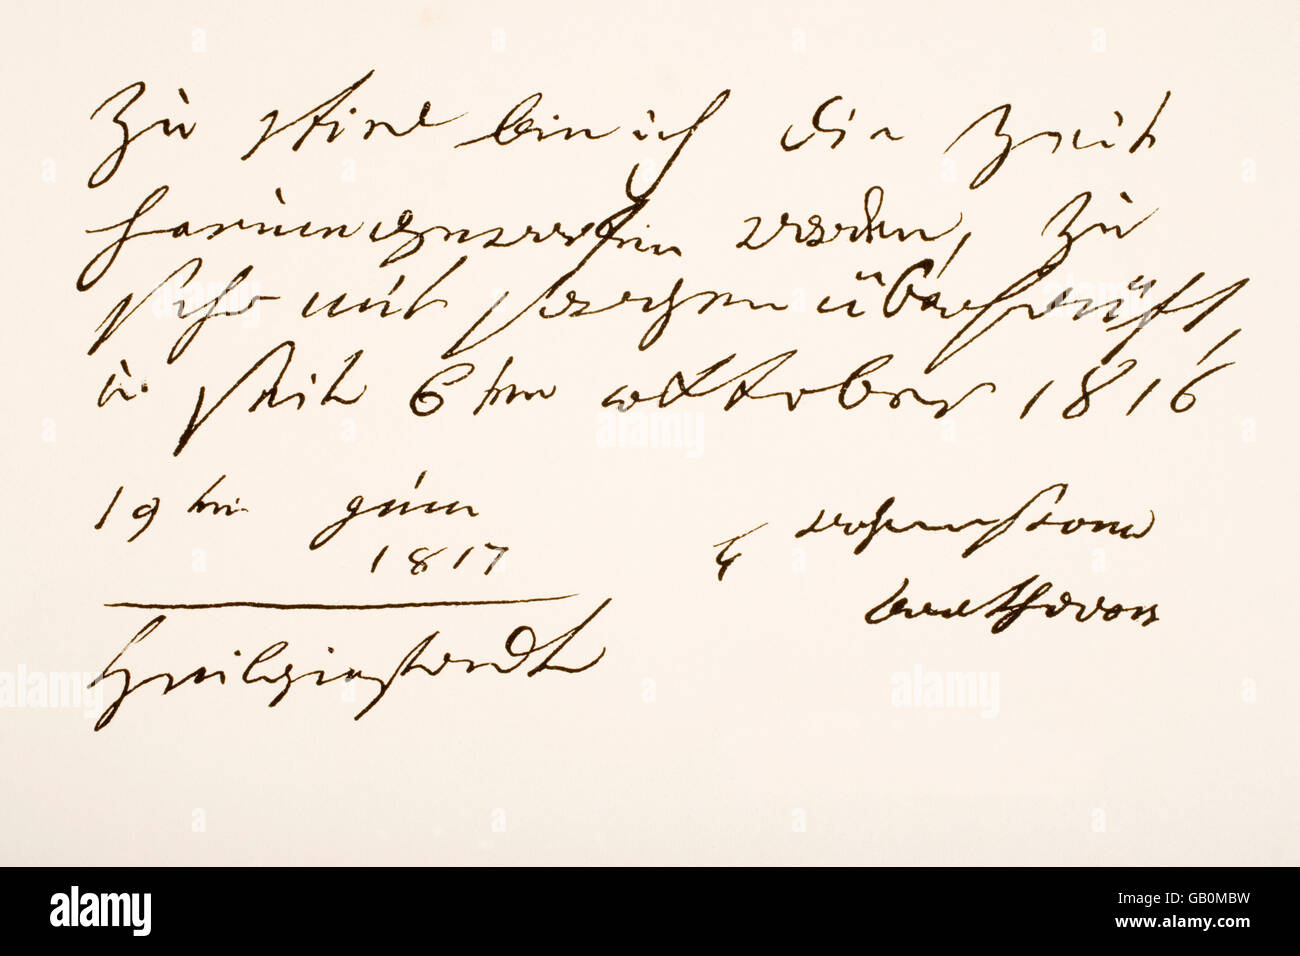 Zu viel bin ich die Zeit
herumgeworfen worden, zu
sehr mit sorgen überhäuft,
u. seit 6ten oktober 1816
19ten juni
1817
Heiligenstadt
ihr Freund
Beethoven
alamy
Image ID: GB0MBW
www.alamy.com